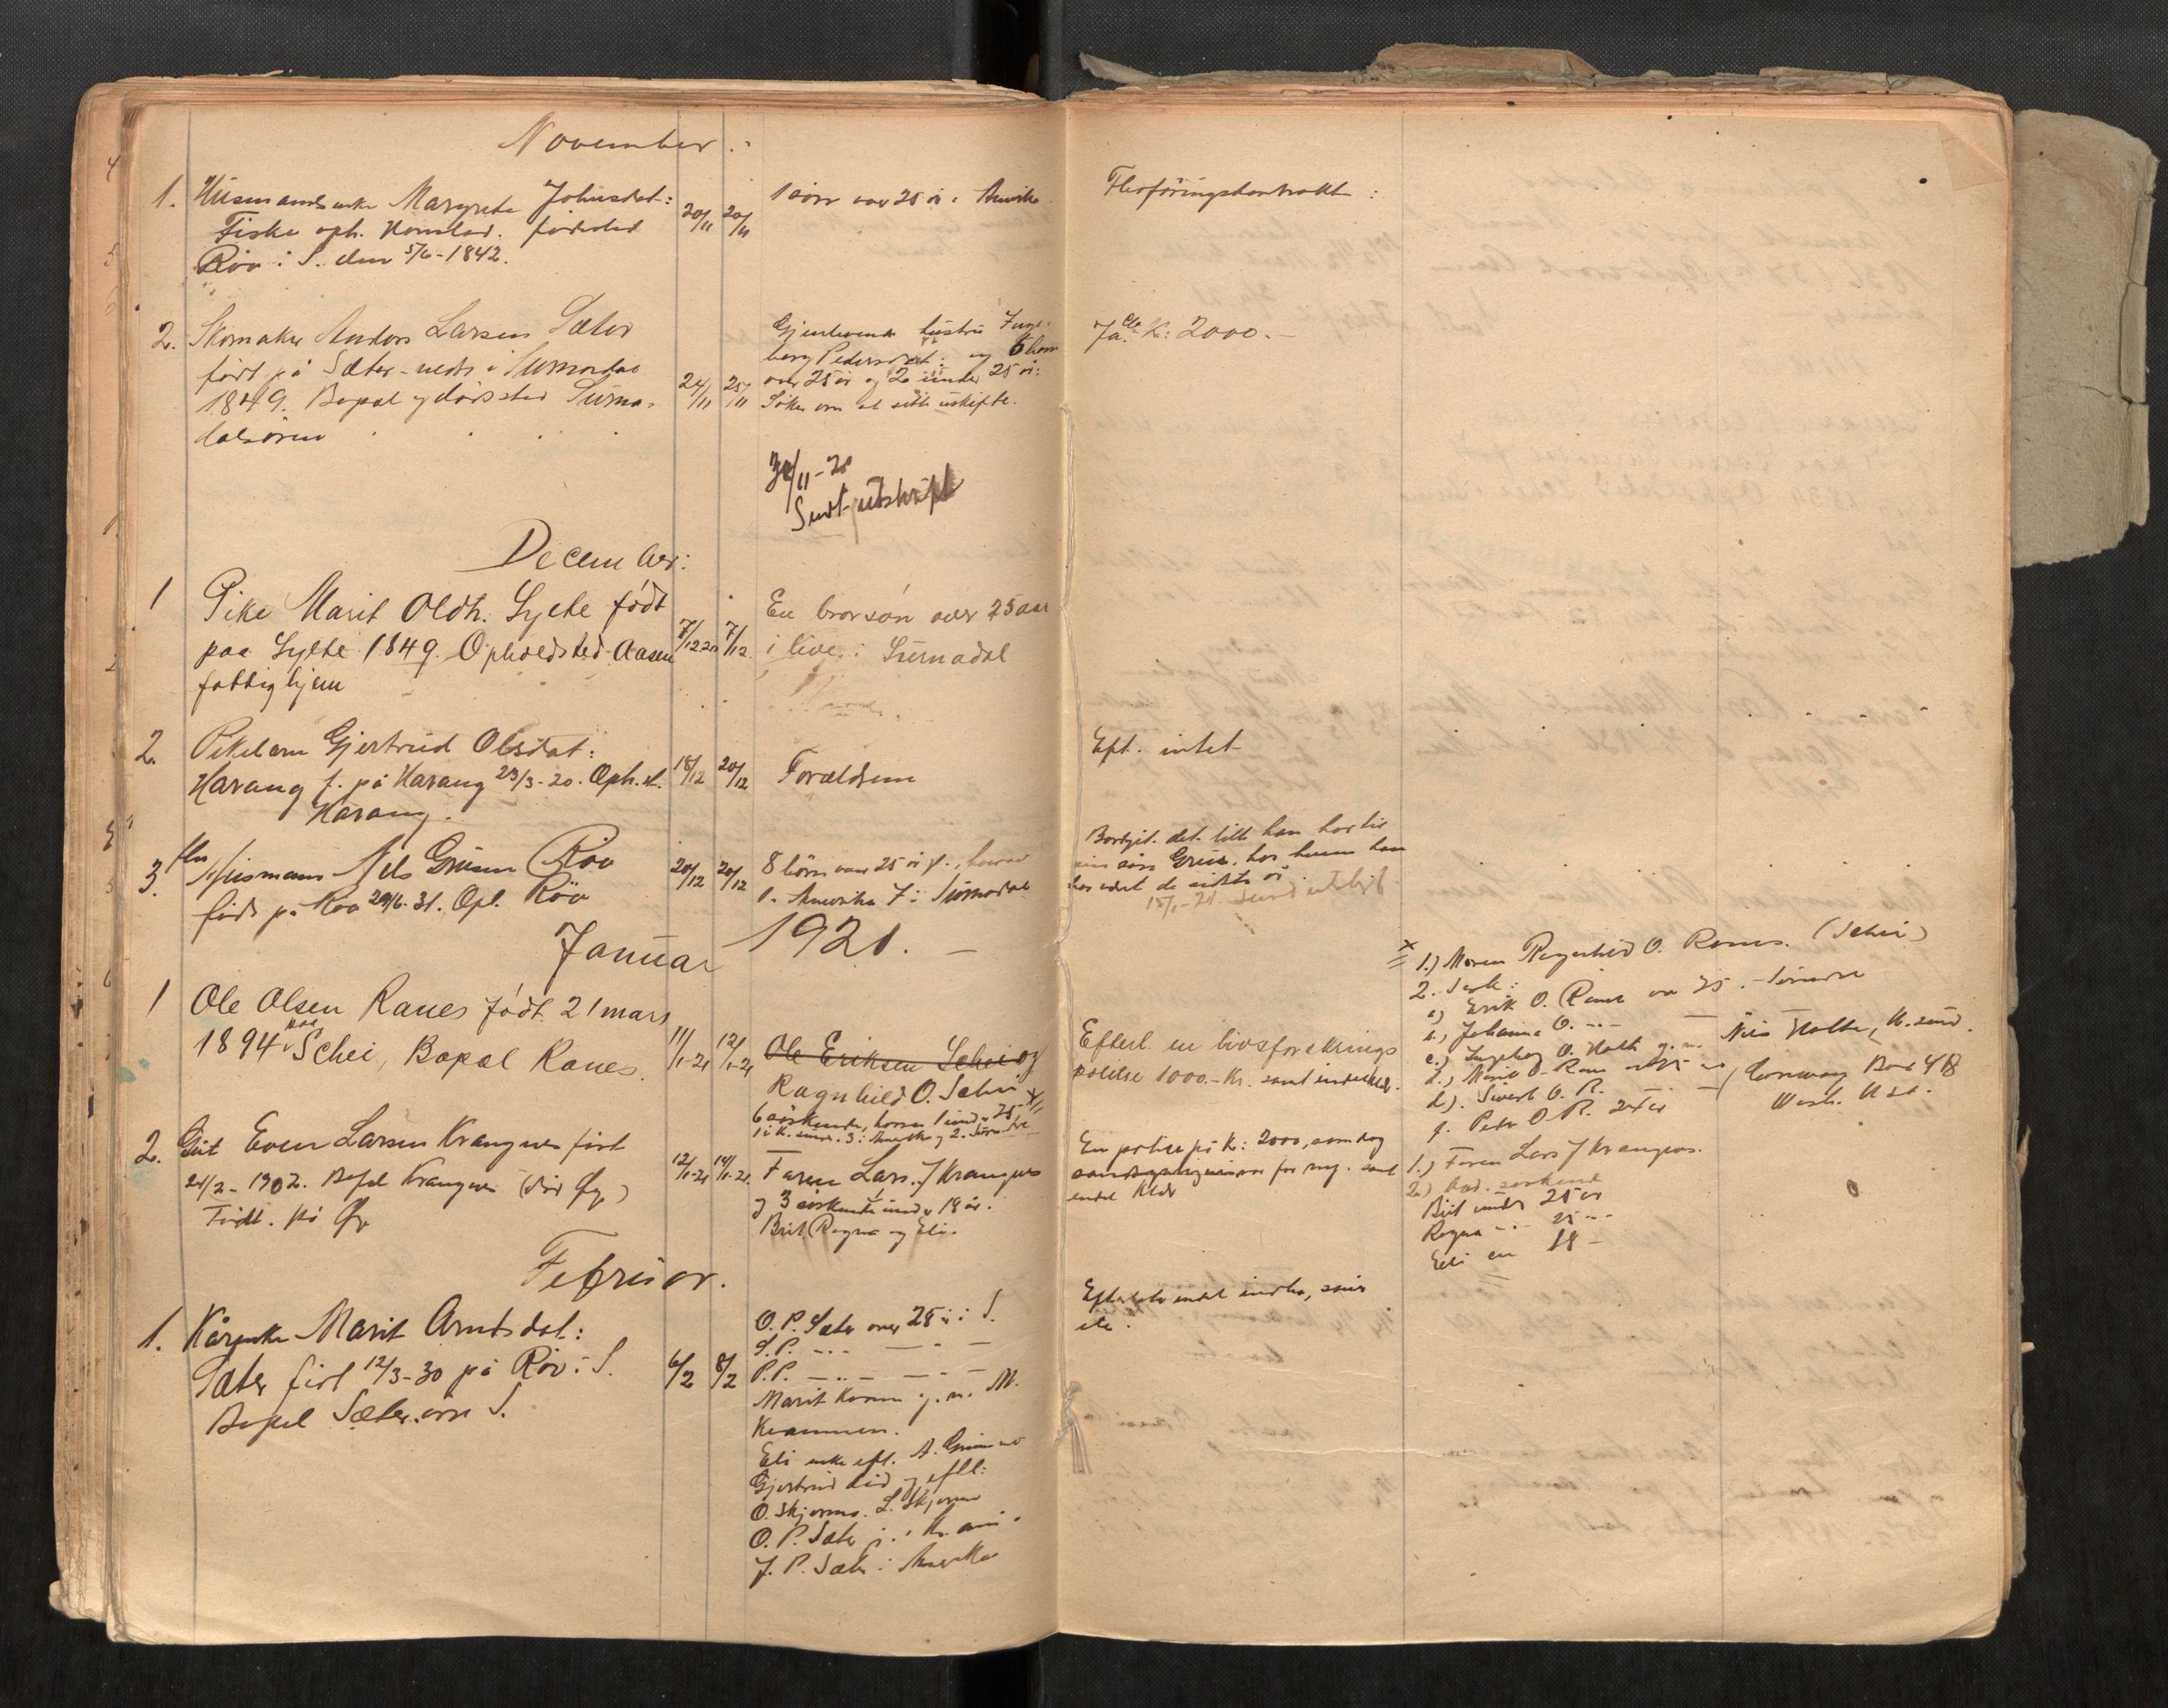 November.
1. Husmandsenke Margrete Johnsdat:
Fiske oph. Honstad. fødested
Röv i S. den 5/6-1842.
20/11 20/11
1 sönn over 25 år i Amerika
Flerföringskontrakt:
2. Skomaker Anders Larsen Sæter
født på Sæter-nedre i Surnadal
1849. Bopæl og dödssted Surna-
dalsören
24/11 25/11
Gjenlevende hustru Inge-
borg Pedersdat: og 5 barn
over 25 år og 2 under 25 år:
Söker om at sitte uskifte.
Ja. Ca. Kr: 2000.-
30/11-20
Sendt utskrift
December:
1 Pike Marit Oldr. Sylte født
paa Sylte 1849. Opholdsted Aasen
fattighjem
7/12 20 7/12.
En brorsön over 25 aar
i live i Surnadal
2. Pikebarn Gjertrud Olsdat:
Harang f. på Harang 23/3-20. Oph.st.
Harang.
18/12 20/12
Forældrene
Eft. intet
3. Husmann Nils Grusen Röv
född på Röv 29/6-31. Opl. Röv
20/12 20/12
8 börn over 25 år, hvorav
1 i Amerika 7 i Surnadal
Bortgit det lille han har til
sin sön Gruse, hos hvem han
har været de sidste år.
15/1-21. Sendt utskrift
Januar 1921.-
1 Ole Olsen Ranes født 21 mars
1894 paa Schei, Bopæl Ranes.
11/1-21 12/1-21
Ole Eriksen Schei og
Ragnhild O. Schei
6 söskende, hvorav 1 under 25
1 i K.sund. 3 i Amerika og 2 i Surnadal
Efterl. en livsforsikrings
polise 1000.- Kr. samt endel klær.
1.) Moren Ragnhild O. Ranes. (Schei)
2. Søsk:
a) Erik O. Ranes over 25.- Surnadal
b.) Johanna O. -..-
c.) Ingeborg O. Holte g. m. Nils Holte, K.sund.
d.) Marit O. Ranes over 25 år
d). Sivert O. R.
f. Peder O R. 24 år
Conway Box 48
Wash. U St.
2. Gut Even Larsen Krangnes född
21/2-1902. Bopæl Krangnes (död Øye)
Född. på Øye
12/1-21 14/1-21.
Faren Lars J Krangnes
og 3 söskende under 18 år.
Brit Ragna og Eli.
En polise på Kr: 2000, som dog
samt
endel klær
1.) Faren Lars J Krangnes.
2.) Avd. søskend
Brit under 25 år
Ragna -..- 25 -..-
Eli en 18 -
Februar.
1. Kårenke Marit Arntsdat:
Sæter föd 12/3-30 på Röv i S.
Bopæl Sæter. övre S.
6/2 8/2
O. P. Sæter over 25 år i S.
S.P. -..- — - —
P.P. -..- — - —
Marit Kvam g. m. M.
Kvammen.
Eli enke eft. A.
Gjertrud död og eftl:
O. Skjermo. L. Skjermo
O. P. Sæter j. i Kr.
J. P. Sæter i Amerika
Efterlater endel indbo, snur
etc.